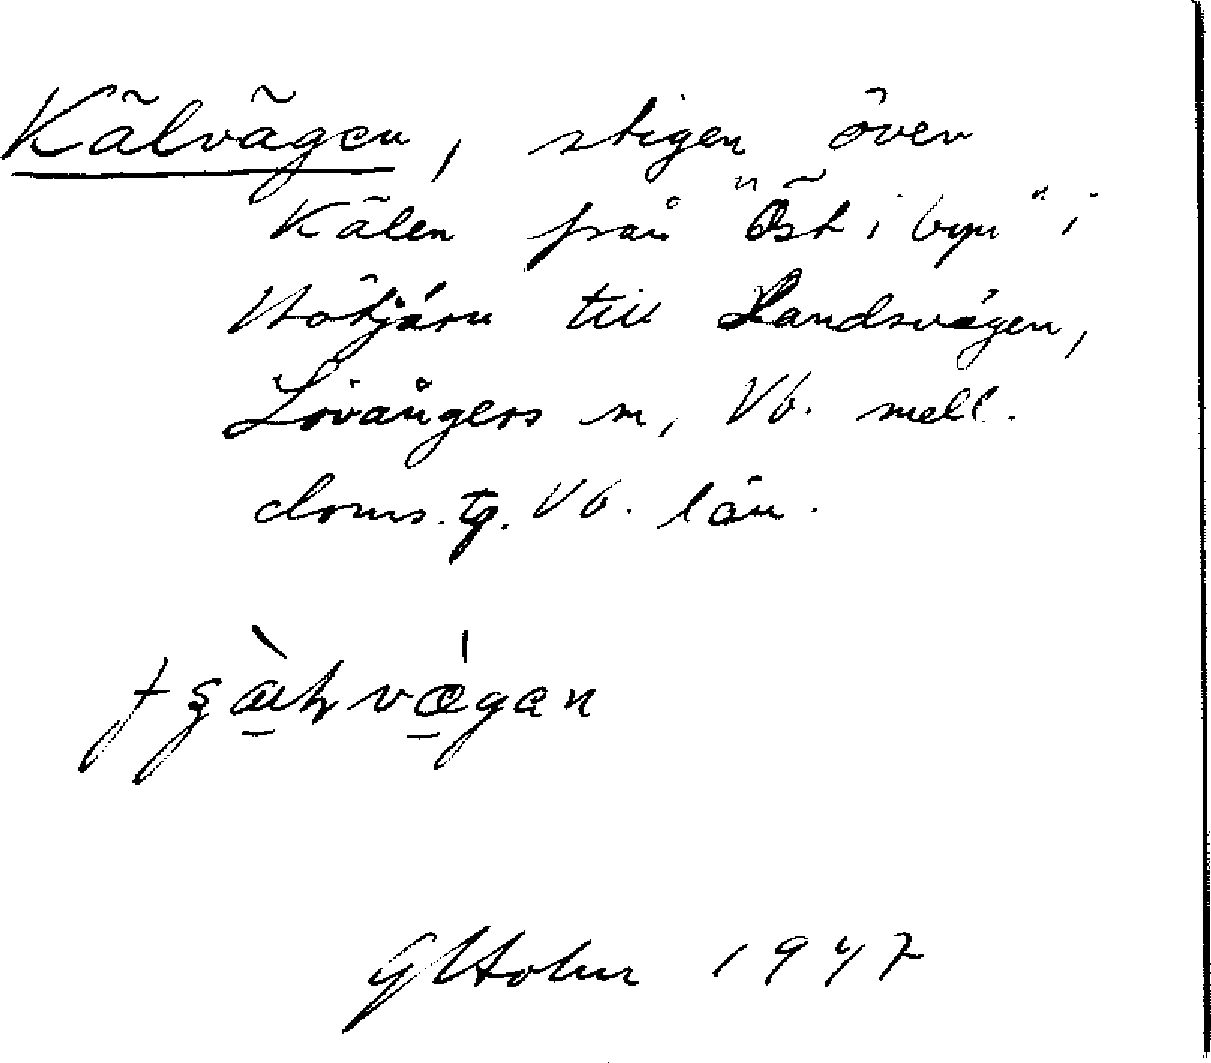 Kälvägen, stigen över
Kälen från "Öst i byn" i
Hötjärn till Landsvägen,
Lövångers sn, Vb. mell.
doms. tg. Vb. län.
G Holm 1947